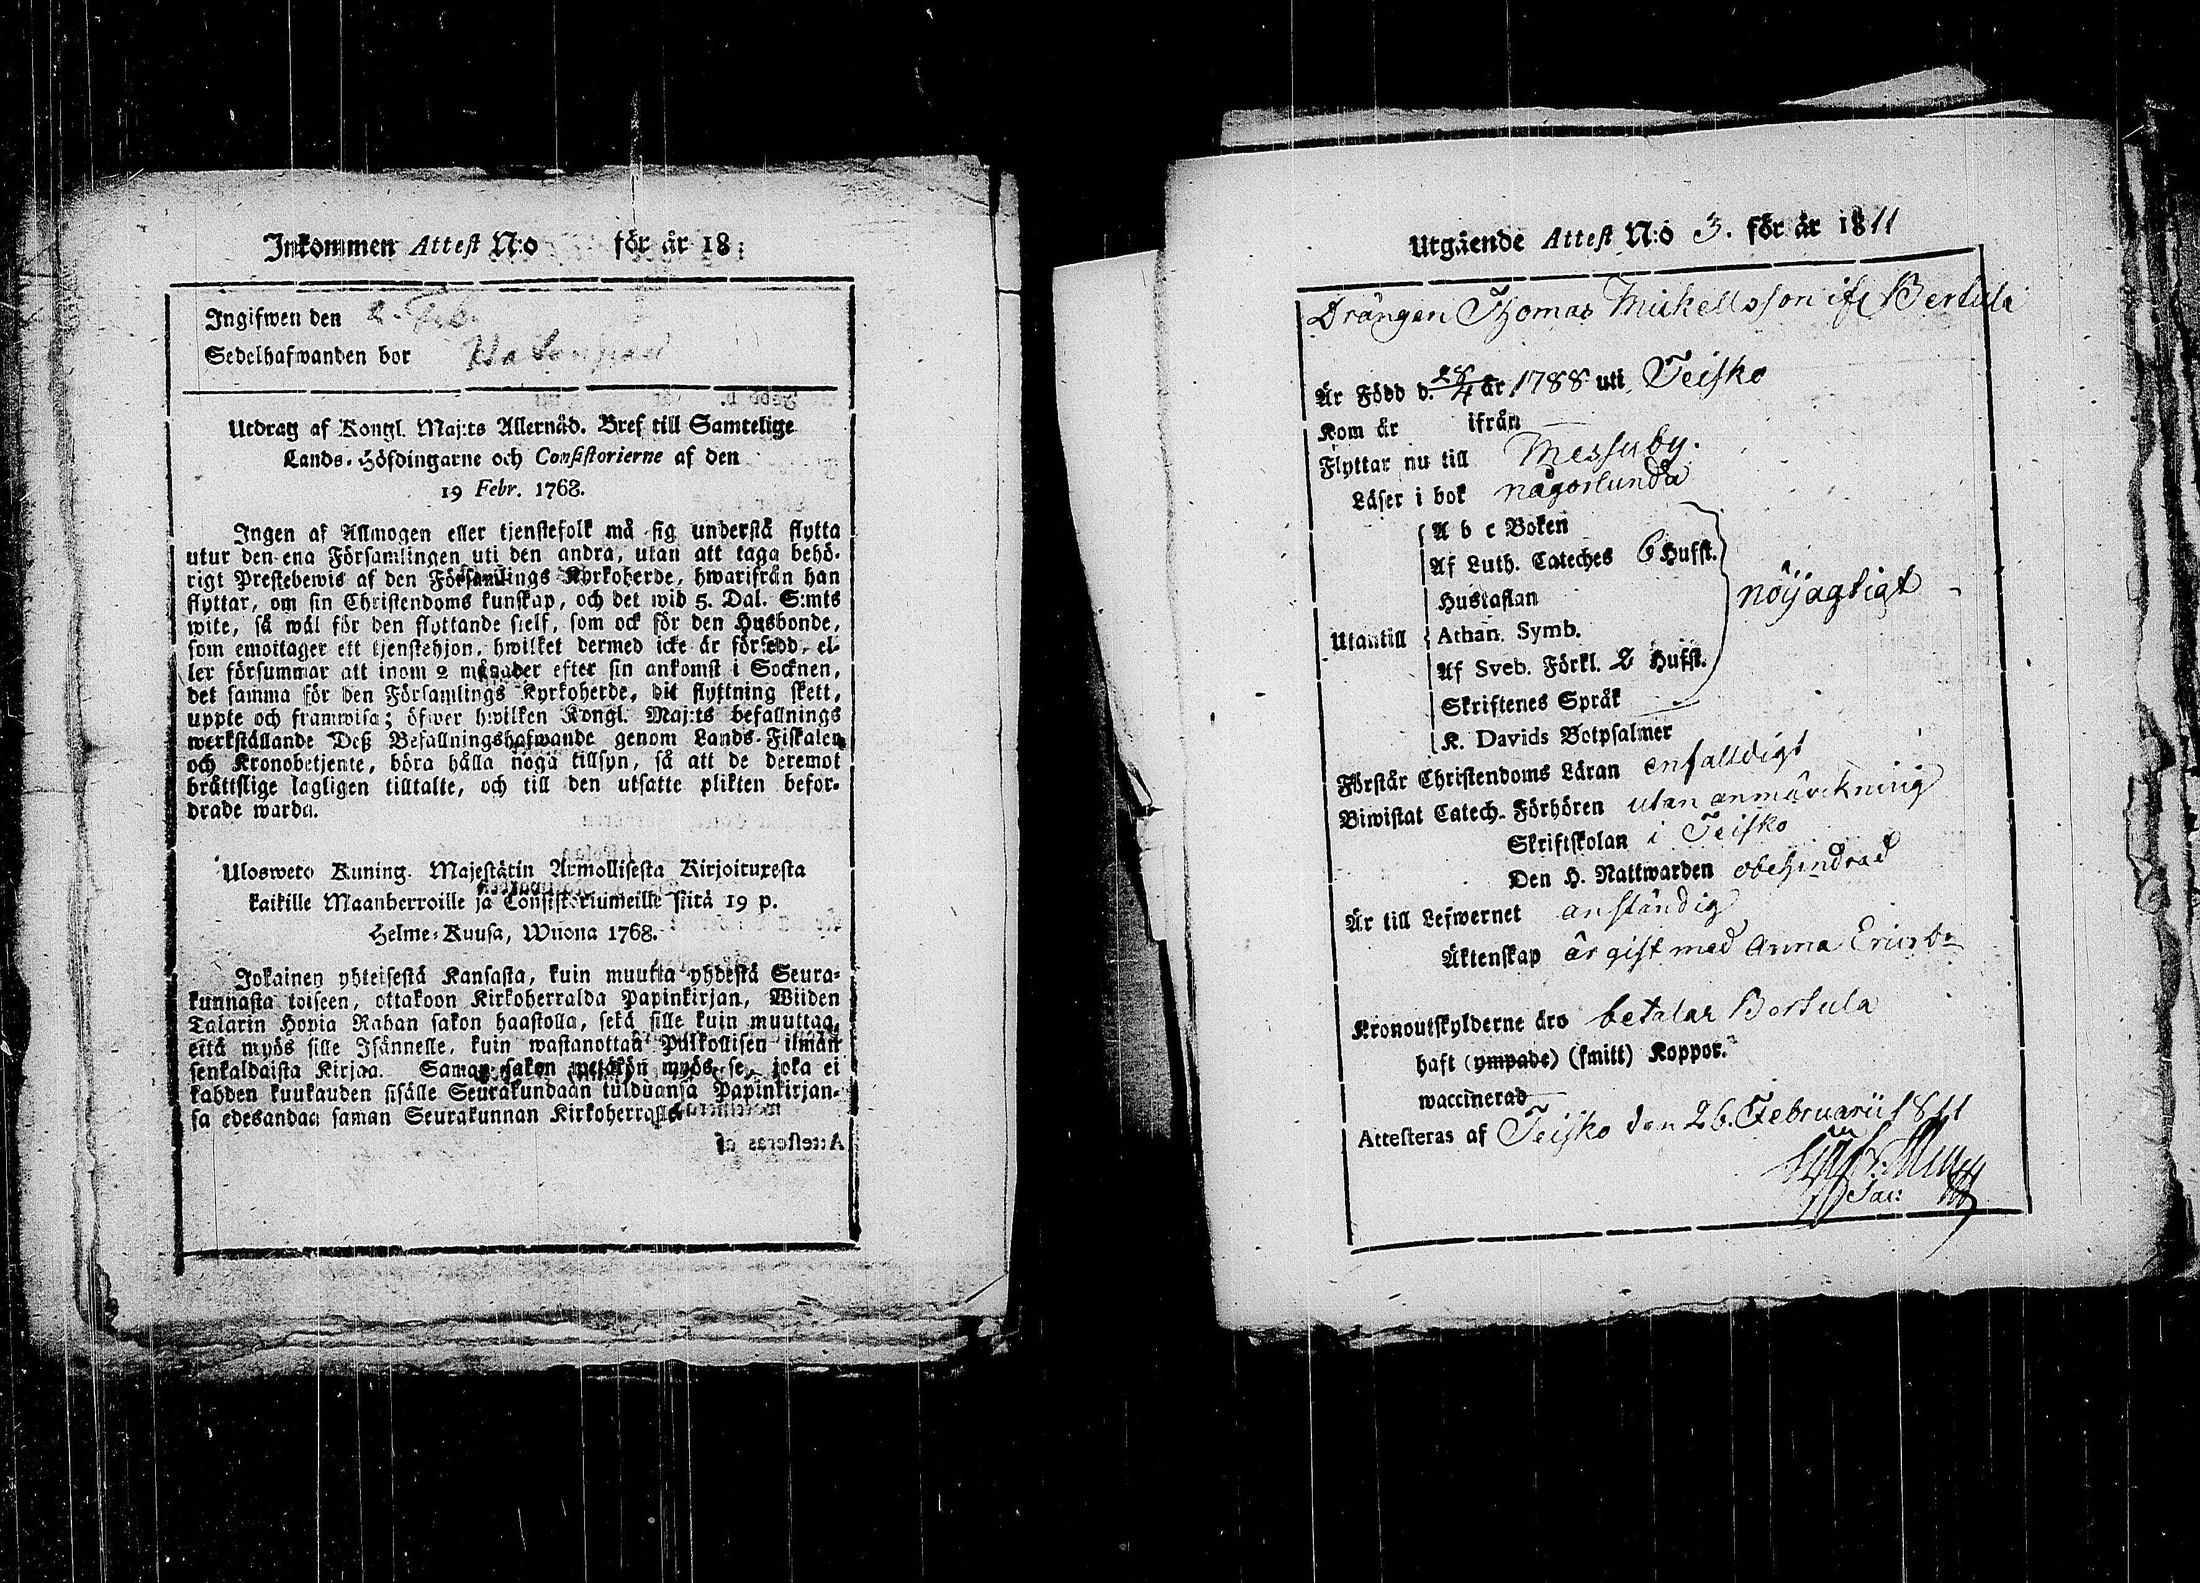 Inkommen Attest N:o för år 18
Ingifwen den 2. Feb.
Sedelhafwanden bor
Utdrag af Kongl. Maj:ts Allernåd. Bref till Samtelige
Lands-Höfdingarne och Consistorierne af den
19 Febr. 1768.
Ingen af Allmogen eller tjenstefolk må sig understå flytta
utur den ena Församlingen uti den andra, utan att taga behö-
rigt Prestebewis af den Församlings Kyrkoherde, hwarifrån han
flyttar, om sin Christendoms kunskap, och det wid 5. Dal. S:mts
wite, så wäl för den flyttande sielf, som ock för den Husbonde,
som emottager ett tjenstehjon, hwilket dermed icke är försedd, el-
ler försummar att inom 2 månader efter sin ankomst i Socknen,
det samma för den Församlings Kyrkoherde, dit flyttning skett,
uppte och framwisa; öfwer hwilken Kongl. Maj:ts befallnings
werkställande Deß Befallningshafwande genom Lands-Fiskaler
och Kronobetjente, böra hålla nöga tillsyn, så att de deremot
bråttslige lagligen tilltalte, och till den utsatte plikten befor-
drade warda.
Ulosweto Kuning. Majestätin Armollisesta Kirjoituxesta
kaikille Maanherroille ja Consistoriumeille siitä 19 p.
Helme-Kuusa, Wuona 1768.
Jokainen yhteisestä Kansasta, kuin muutta yhdestä Seura-
kunnasta toiseen, ottakoon Kirkoherralda Papinkirjan, Wiiden
Talarin Hopia Rahan sakon haastolla, sekä sille kuin muuttaa,
että myös sille Isännelle, kuin wastanottaa Pulkollisen ilman
senkaldaista Kirjaa. Saman sakon wetäkön myös se, joka ei
kahden kuukauden sisälle Seurakundaan tulduansa Papinkirjan-
sa edesandaa saman Seurakunnan Kirkoherralle.
Utgående Attest N:o 3. för år 1811
Drängen Thomas Mickellsson ifr Bertula
Är Född d. 28/4 år 1788 uti Teisko
Kom år ifrån
Flyttar nu till Messuby.
Läser i bok någorlunda
A b c Boken
Af Luth. Cateches 6 Hufst.
Hustaflan
Utantill Athan. Symb. nöijagtigt
Af Sveb. Förkl. 2 Hufst.
Skriftenes Språk
K. Davids Botpsalmer
Förstår Christendoms Läran enfalldigt
Biwistat Catech. Förhören utan anmärckning
Skriftskolan i Teisko
Den H. Nattwarden obehindrad
Är till Lefwernet anständig
Äktenskap är gift med Anna Ericsdr
Kronoutskylderne äro betalar Bertula
haft (ympade) (smitt) Koppor.
waccinerad
Attesteras af Teisko den 26. Februarii 1811